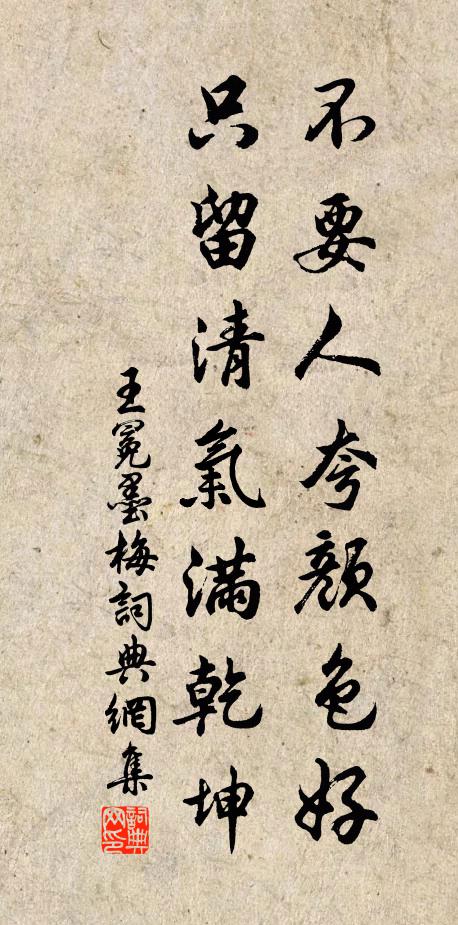 不要人夸顏色好
只留清氣滿乾坤
王冕墨梅詞典網集
詞典網印